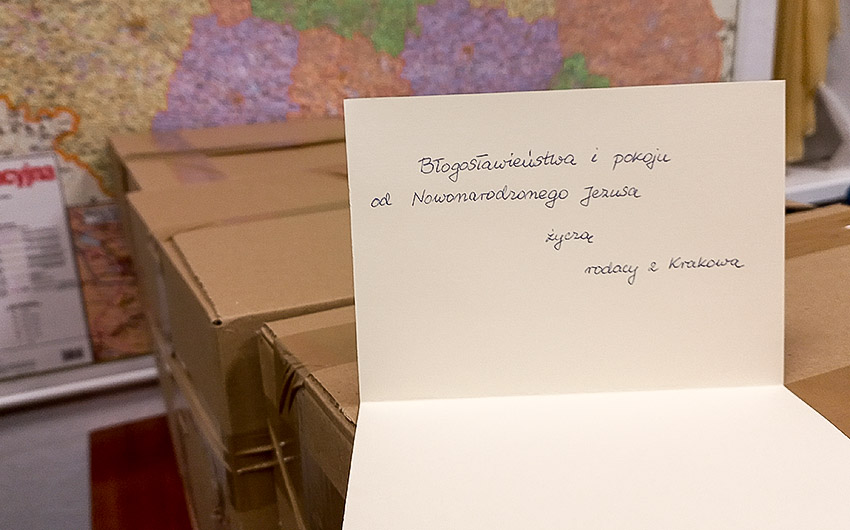 cyjna
Błogosławieństwa i pokoju
od Nowonarodzonego Jezusa
życzą
rodacy z Krakowa